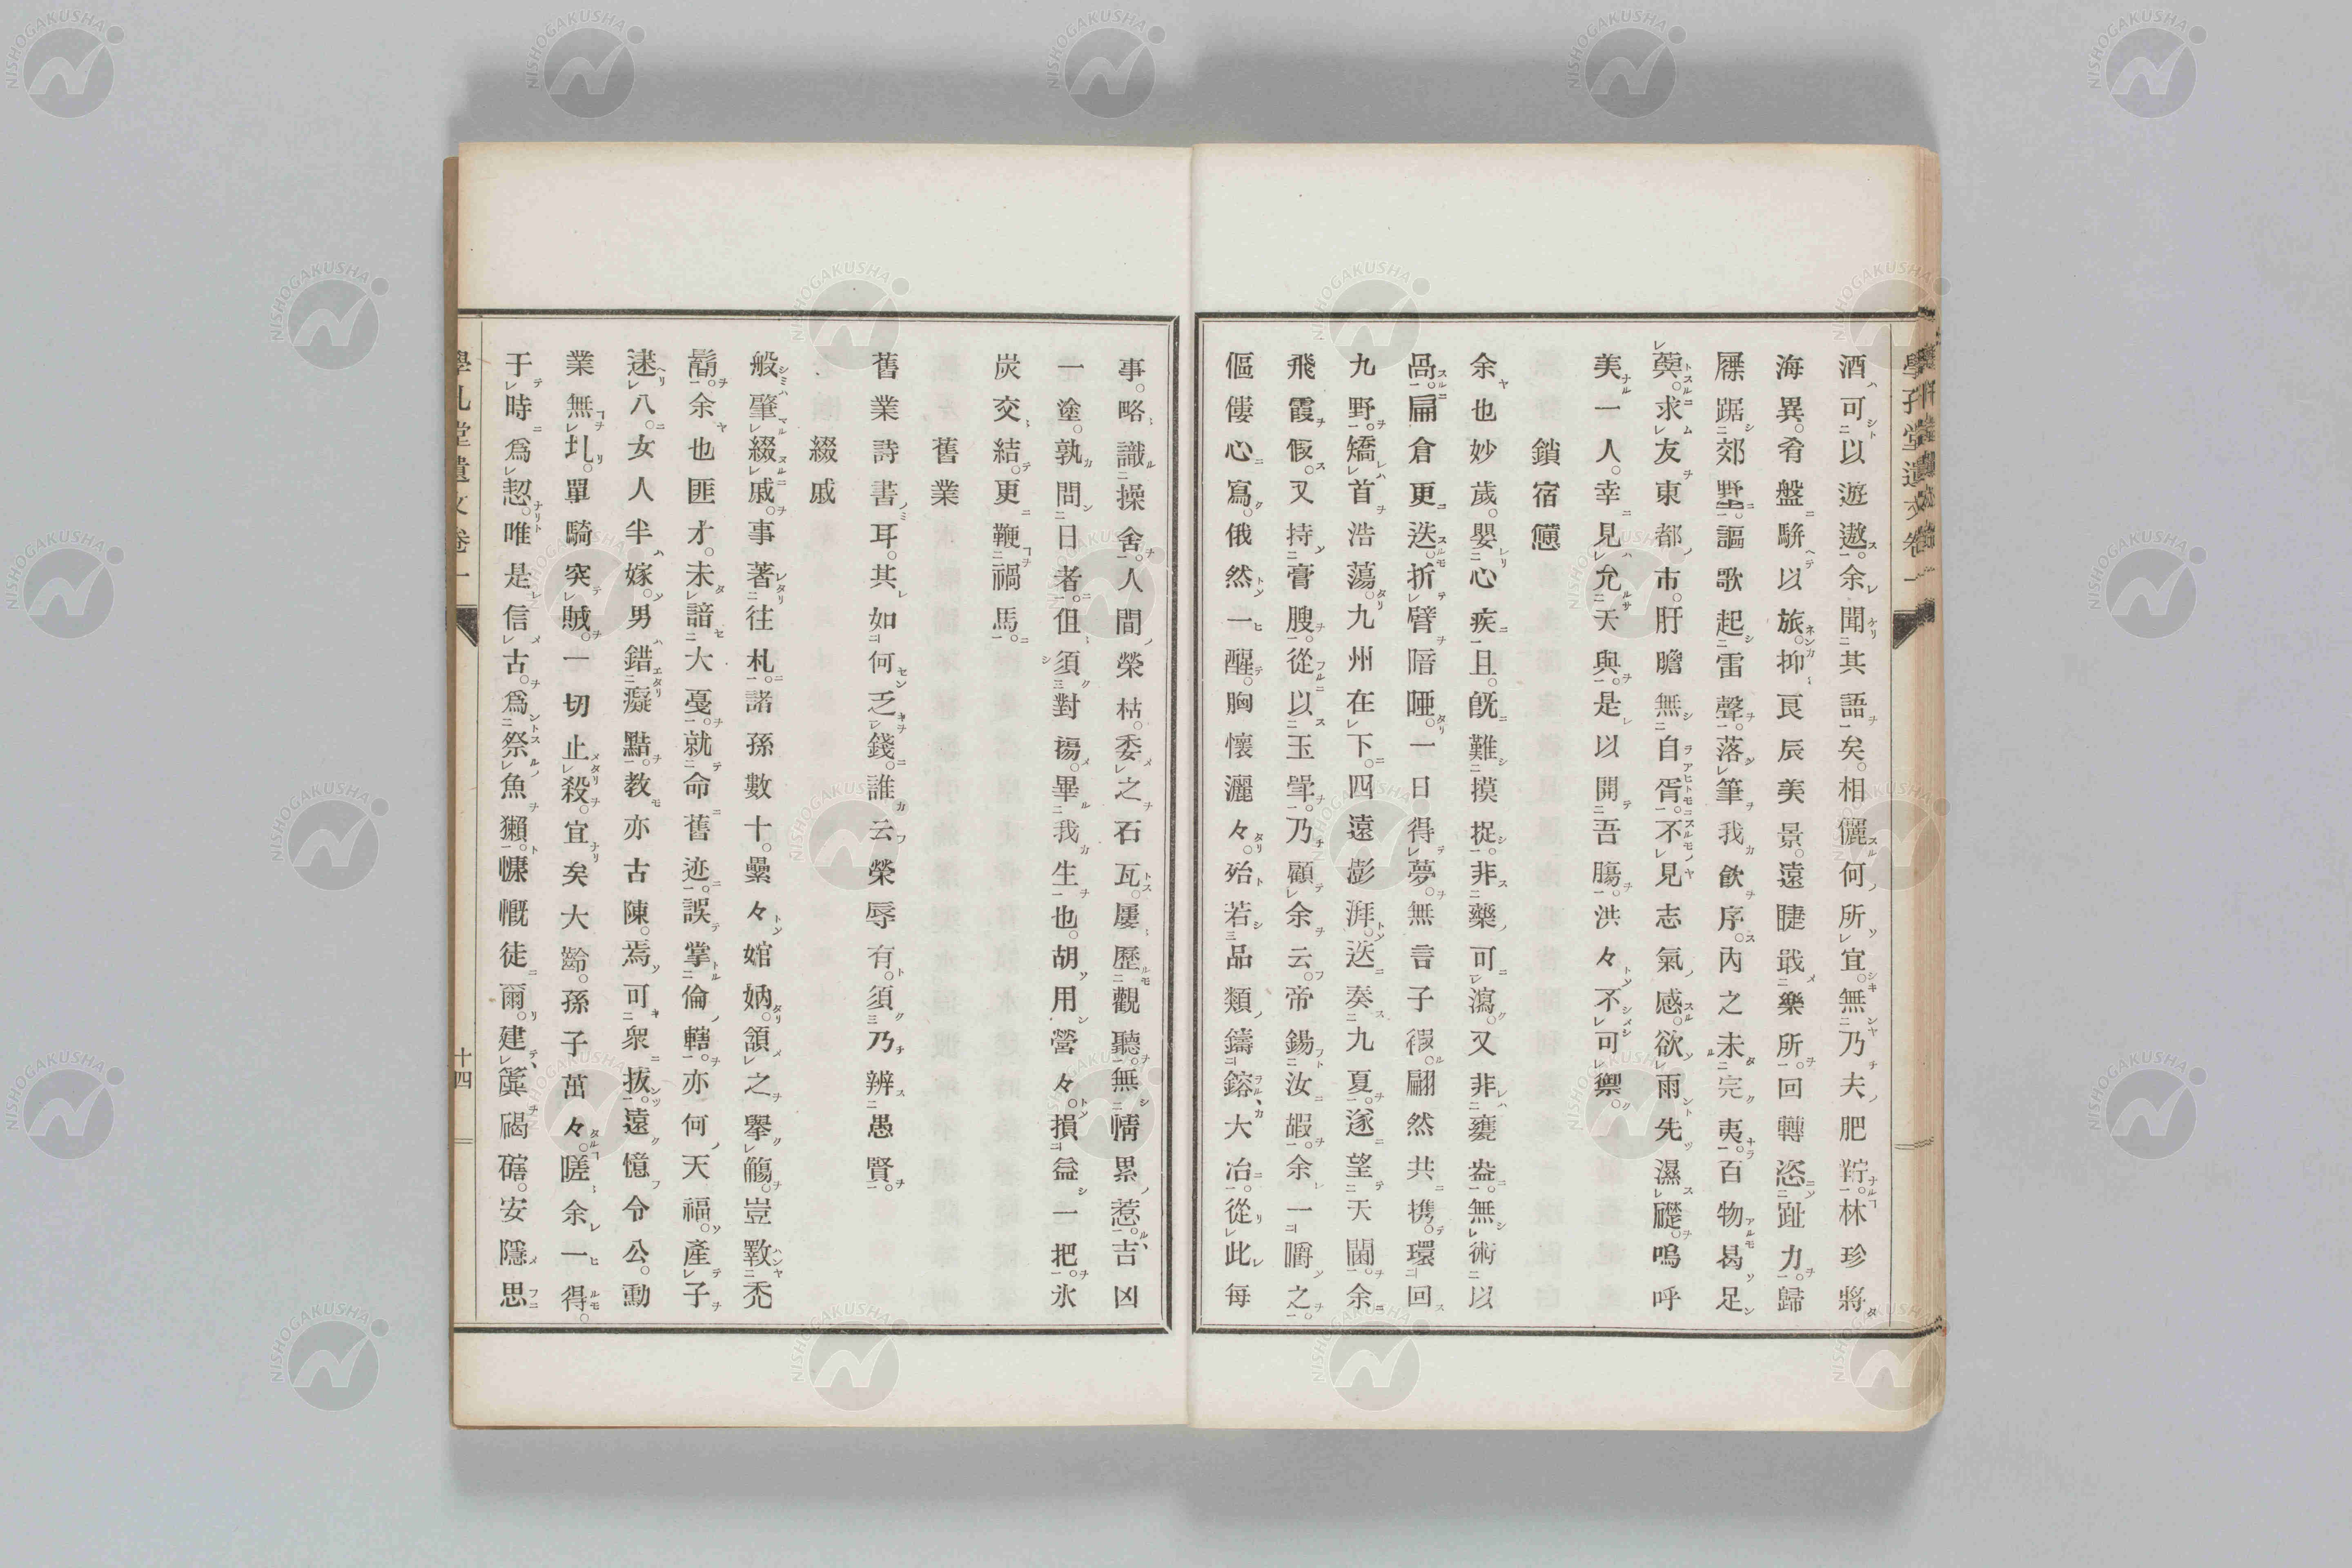 酒可以遊遨。余聞其語矣。相儷何所宜。無乃夫肥羜。林珍將
海異。肴盤駢以旅。抑良辰美景。遠睫戢樂所。回轉恣趾力。歸
屧踞郊墅。謳歌起雷聲。落筆我飮序。內之未完夷。百物曷足
求友東都市。肝膽無自胥。不見志氣感。欲雨先濕礎。嗚呼
美一人。幸見允天與。是以開吾膓。洪々不可禦。
鎖宿
余也妙歲。嬰心疾且。旣難摸捉。非藥可瀉。又非甕盎。無術以
扃倉更迭。折臂喑啞。一日得夢。無言子徦。翩然共携。環回
九野。矯首浩蕩。九州在下。四遠彭湃。迭奏九夏。遂望天閽。余
飛霞假。又持膏腴。從以玉斝。乃顧余云。帝錫汝嘏。余一嚼之。
傴僂心寫。俄然一醒。胸懷灑々。殆若品類鑄鎔大冶。從此每
事。略識操舍。人間榮枯。委之石瓦。屢歷觀聽。無情累惹。吉凶
一塗。孰問日者。伹須對楊畢我生也。胡用營々。損益一把。氷
炭交結。更鞭禍馬。
舊業
舊業詩書耳。其如何乏錢。誰云榮辱有。須乃辨愚賢。
綴戚
般肇綴戚。事著往札。諸孫數十。纍々婠妠。頷之擧觴。豈斁禿
鬝。余也匪才。未諳大戞。就命舊迹。誤掌倫轄。亦何天福。產子
迷八。女人半嫁。男錯癡黠。敎亦古陳。焉可衆拔。遠憶令公。勳
業無圠。單騎突賊。一切止殺。宜矣大齡。孫子萬々。嗟余一得。
于時爲恝。唯是信古。爲祭魚獺。慷慨徒爾。建簴碣磍。安隱思
學孔堂遺文卷一
十四